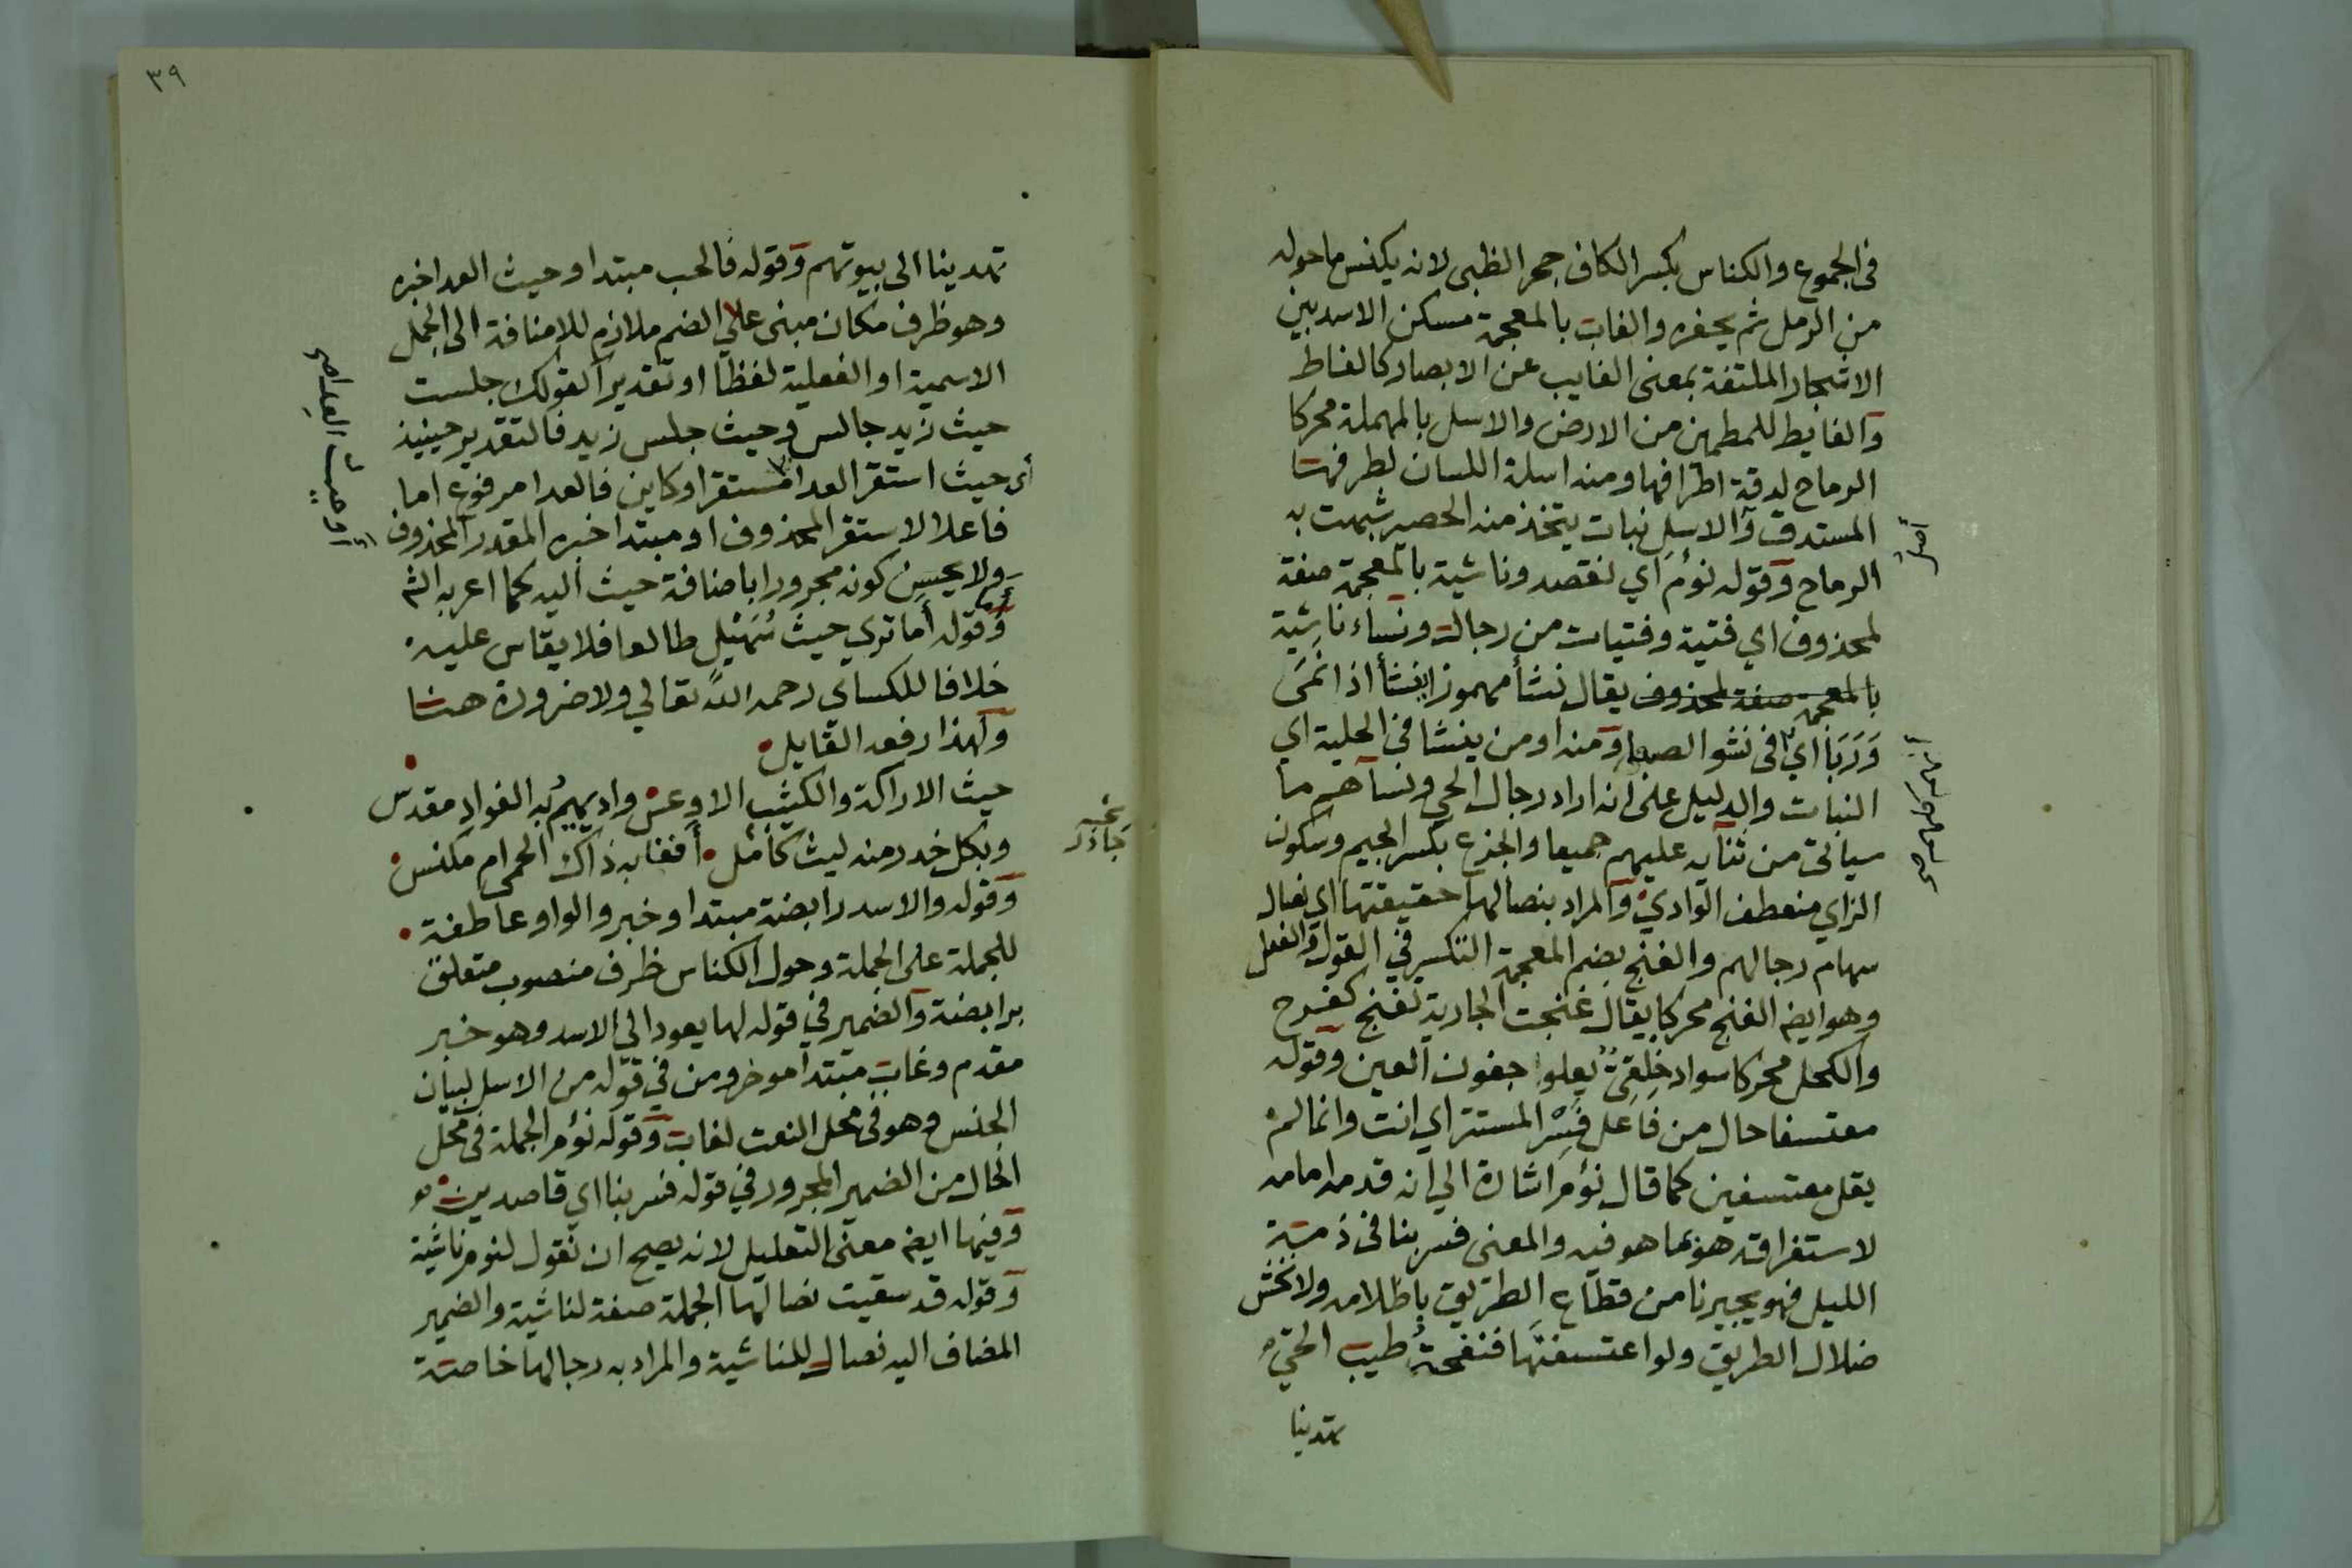 في الجموع والكناس بكسر الكاف جحر الظبي لانه يكنس ما حوله
من الرمل ثم يحفره والغاب بالمعجمة مسكن الاسد بين
الاشجار الملتفة بمعنى الغايب عن الابصار كالغاط
والغايط للمطمين من الارض والاسل بالمهملة محركا
الرماح لدقة اطرافها ومنه اسلة اللسان لطرفها
المستدق والاسل نبات يتخذ منه الحصير شبهت به
الرماح وقوله نؤم اي نقصد وناشية بالمعجمة صفة
لمحذوف اي فتية وفتيات من رجال ونساء ناشية
بالمعجمة صفة لمحذوف يقال نشأ مهموزا ينشأ اذا نمى
وربا اي في نشو الصبا ومنه او من ينشا في الحلية اي
النبات والدليل على انه اراد رجال الحي ونساهم ما
سياتي من ثنايه عليهم جميعا والجزع بكسر الجيم وسكون
الزاي منعطف الوادي والمراد بنصالها حقيقتها اي نصال
سهام رجالهم والغنج بضم المعجمة التكسير في القول والفعل
وهو ايضا الغنج محركا يقال غنجت الجارية تغنج كفرح
والكحل محركا سواد خلقي يعلو جفون العين وقوله
معتسفا حال من فاعل فسر المستتر اي انت وانما لم
يقل معتسفين كما قال نؤم اشارة الى انه قدمه امامه
لاستغراقه هو بما هو فيه والمعنى فسر بنا في ذمة
الليل فهو يجيرنا من قطاع الطريق باظلامه ولا نخش
ضلال الطريق ولو اعتسفتها فنفحة طيب الحي
تهدينا
٣٩
تهدينا الى بيوتهم وقوله فالحب مبتدا وحيث العدا خبره
وهو ظرف مكان مبني على الضم ملازم للاضافة الى الجمل
الاسمية او الفعلية لفظا او تقديرا كقولك جلست
حيث زيد جالس وحيث جلس زيد فالتقدير حينيذ
أي حيث استقر العدا مستقر او كاين فالعدا مرفوع اما
فاعلا لاستقر المحذوف او مبتدا خبره المقدر المحذوف
ولا يحسن كونه مجرورا باضافة حيث اليه كما اعربه الش
وقوله أما ترى حيث سهيل طالعا فلا يقاس عليه
خلافا للكساي رحمه الله تعالى ولا ضرورة هنا
ولهذا رفعه القايل
حيث الاراكة والكثيب الاوعس واد يهيم به الفواد مقدس
وبكل خدر منه ليث كامن أفغابه ذاك الحمى ام مكنس
وقوله والاسد رابضة مبتدا وخبر والواو عاطفة
للجملة على الجملة وحول الكناس ظرف منصوب متعلق
برابضة والضمير في قوله لها يعود الى الاسد وهو خبر
مقدم وغاب مبتدا موخر ومن في قوله من الاسل لبيان
الجنس وهو في محل النعت لغاب وقوله نؤم الجملة في محل
الحال من الضمير المجرور في قوله فسر بنا اي قاصدين
وفيها ايضا معنى التعليل لانه يصح ان نقول لنوم ناشية
وقوله قد سقيت نصالها الجملة صفة لناشية والضمير
المضاف اليه نصال للناشية والمراد به رجالها خاصة